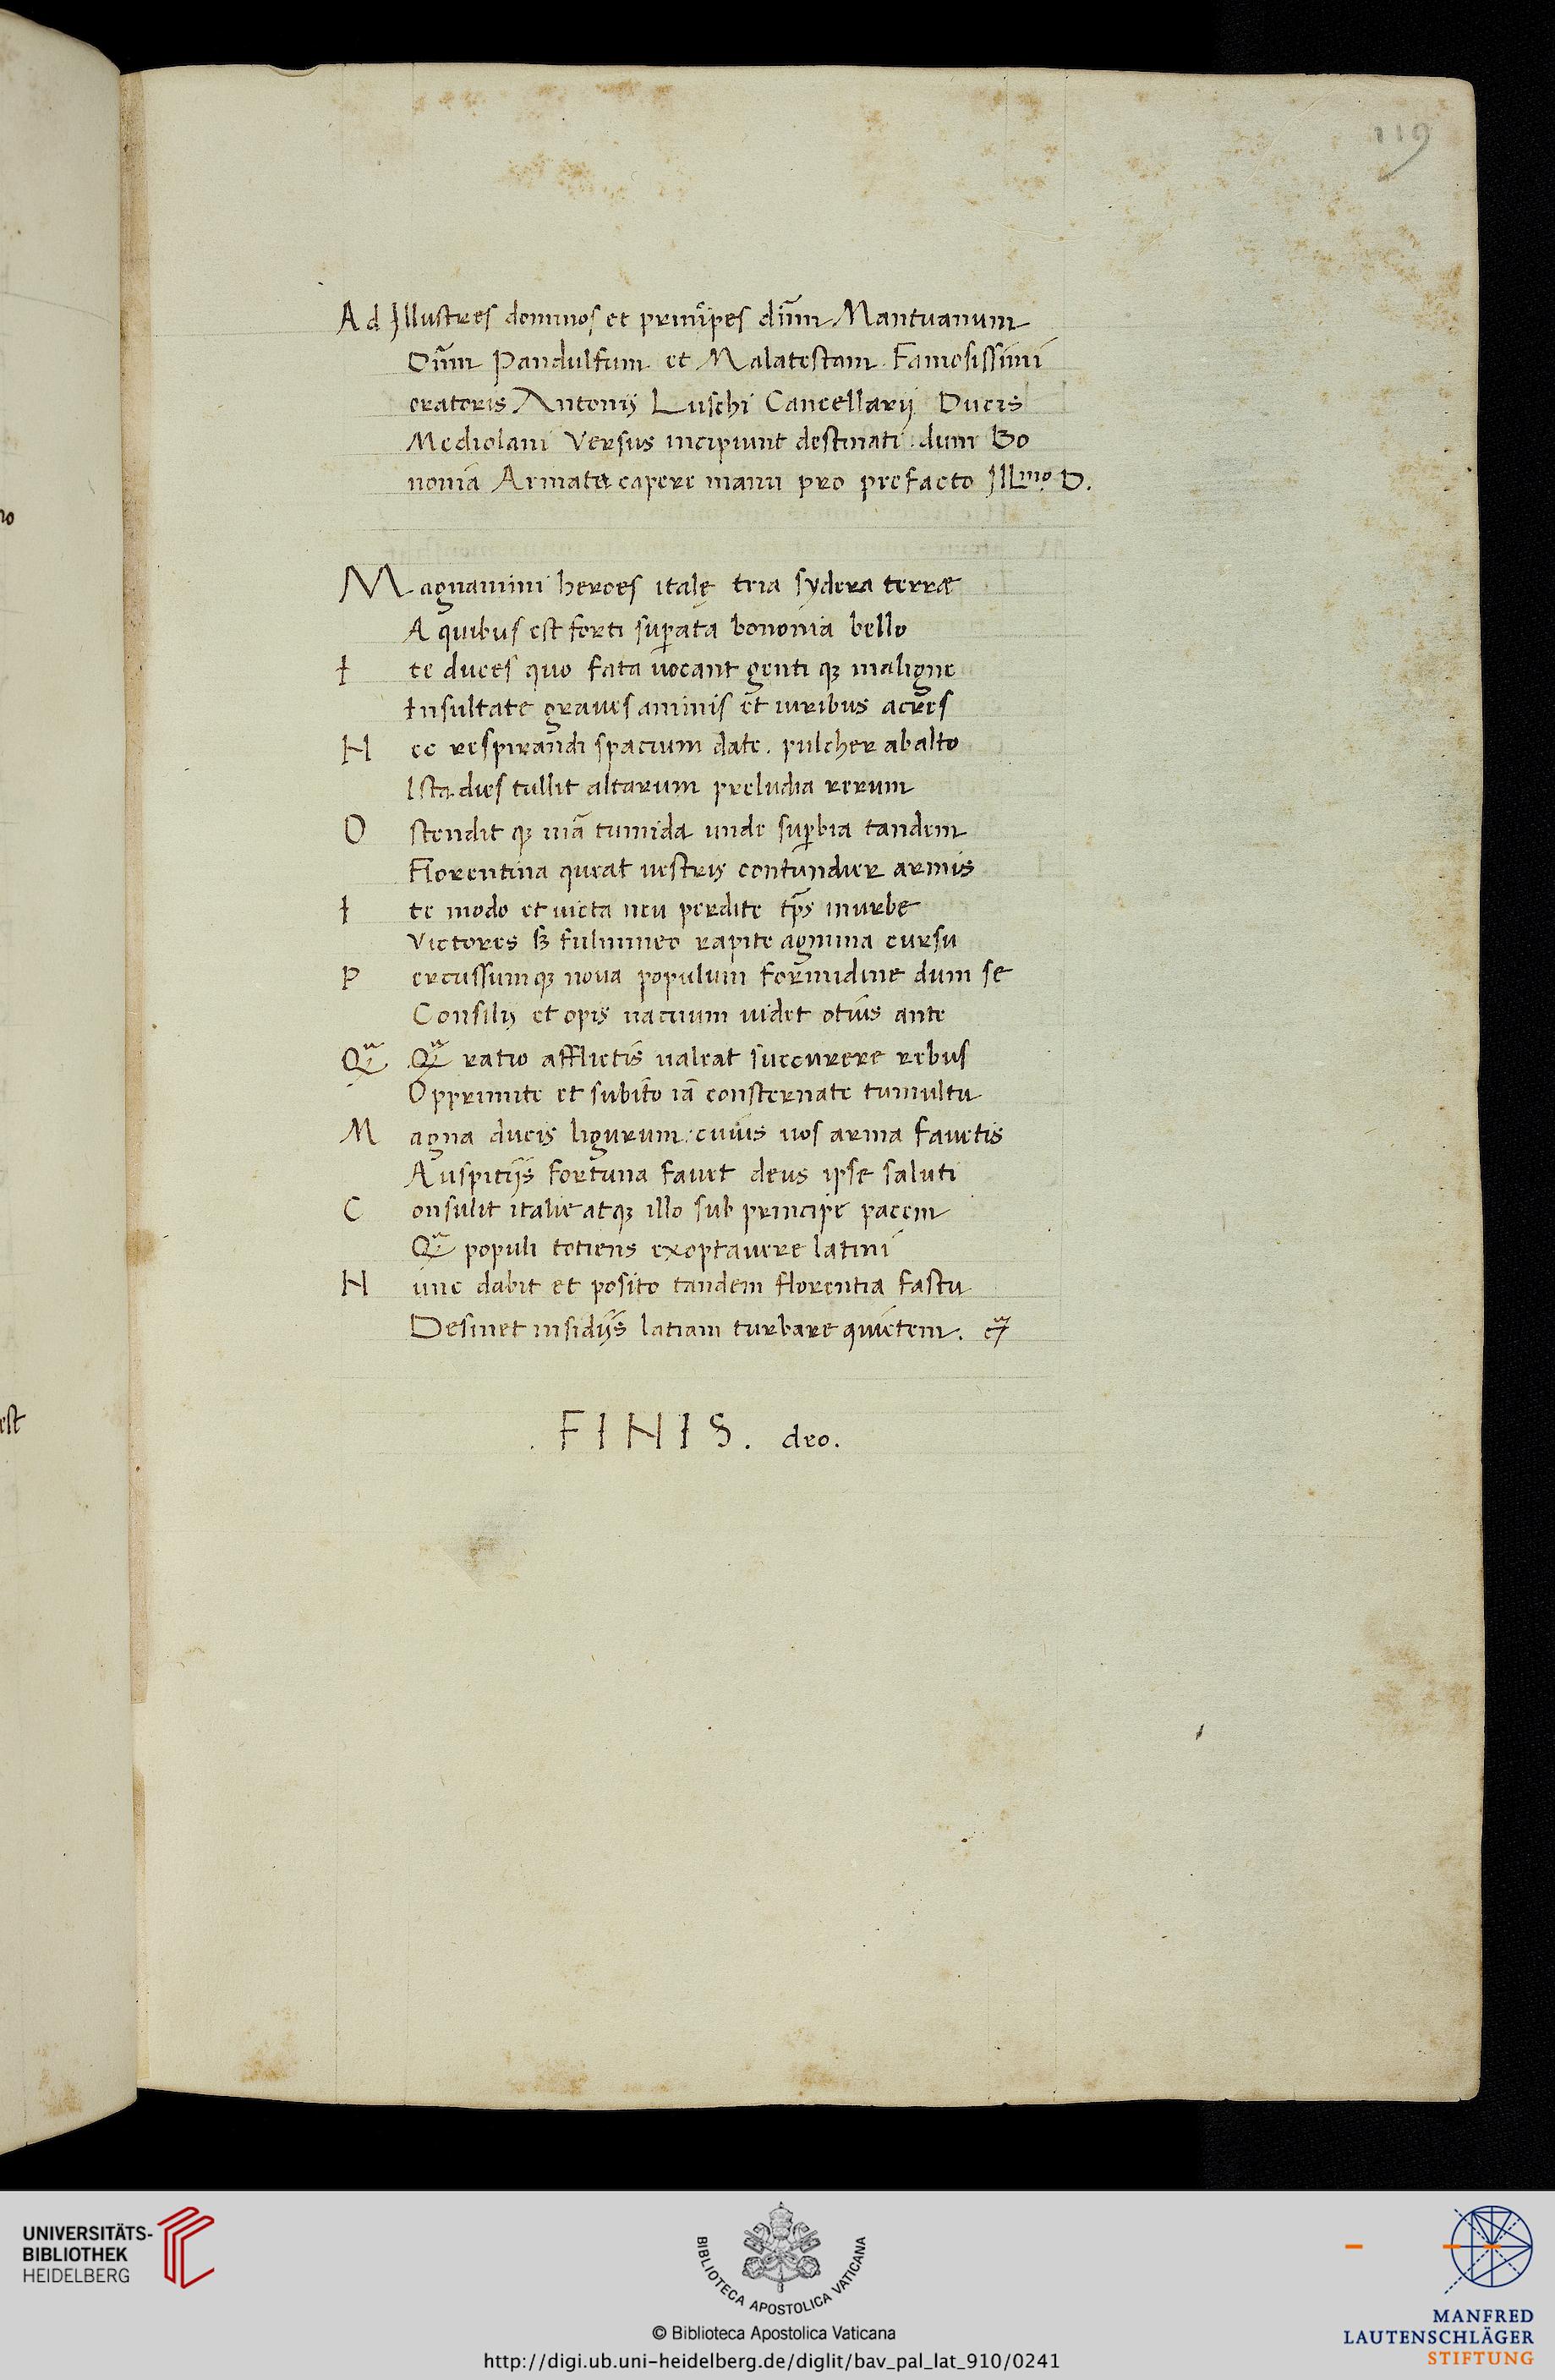 119
Ad Illustres dominos et principes dn̄m Mantuanum
Dn̄m Pandulfum et Malatestam Famosissimi
oratoris Antonij Luschi Cancellarij Ducis
Mediolani Versus incipiunt destinati dum Bo
noniā Armata capere manu pro prefacto Illmo. D.
Magnanimi heroes italę tria sydera terræ
A quibus est forti sup̄ata bononia bello
Ite duces quo fata uocant genti qꝫ maligne
Insultate graues animis et uiribus acres
Nec respirandi spacium date. pulcher ab alto
Ista dies tullit altarum preludia rerum
Ostendit qꝫ uiā tumida unde sup̄bia tandem
Florentina queat uestris contundier armis
Ite modo et uicta neu perdite tp̄s in urbe
Victores sꝫ fulmineo rapite agmina cursu
Percussumqꝫ noua populum formidine dum se
Consilij et opis uacuum uidet otius ante
Qua Qua ratio afflictis ualeat succurere rebus
Opprimite et subito iā consternate tumultu
Magna ducis ligurum cuius uos arma fauetis
Auspitijs fortuna fauet deus ipse saluti
Consulit italie atqꝫ illo sub principe pacem
Quā populi totiens exoptauere latini
Nunc dabit et posito tandem florentia fastu
Desinet insidijs latiam turbare quietem.
. FINIS. deo.
no
est
UNIVERSITÄTS-
BIBLIOTHEK
HEIDELBERG
BIBLIOTECA APOSTOLICA VATICANA
© Biblioteca Apostolica Vaticana
http://digi.ub.uni-heidelberg.de/diglit/bav_pal_lat_910/0241
MANFRED
LAUTENSCHLÄGER
STIFTUNG